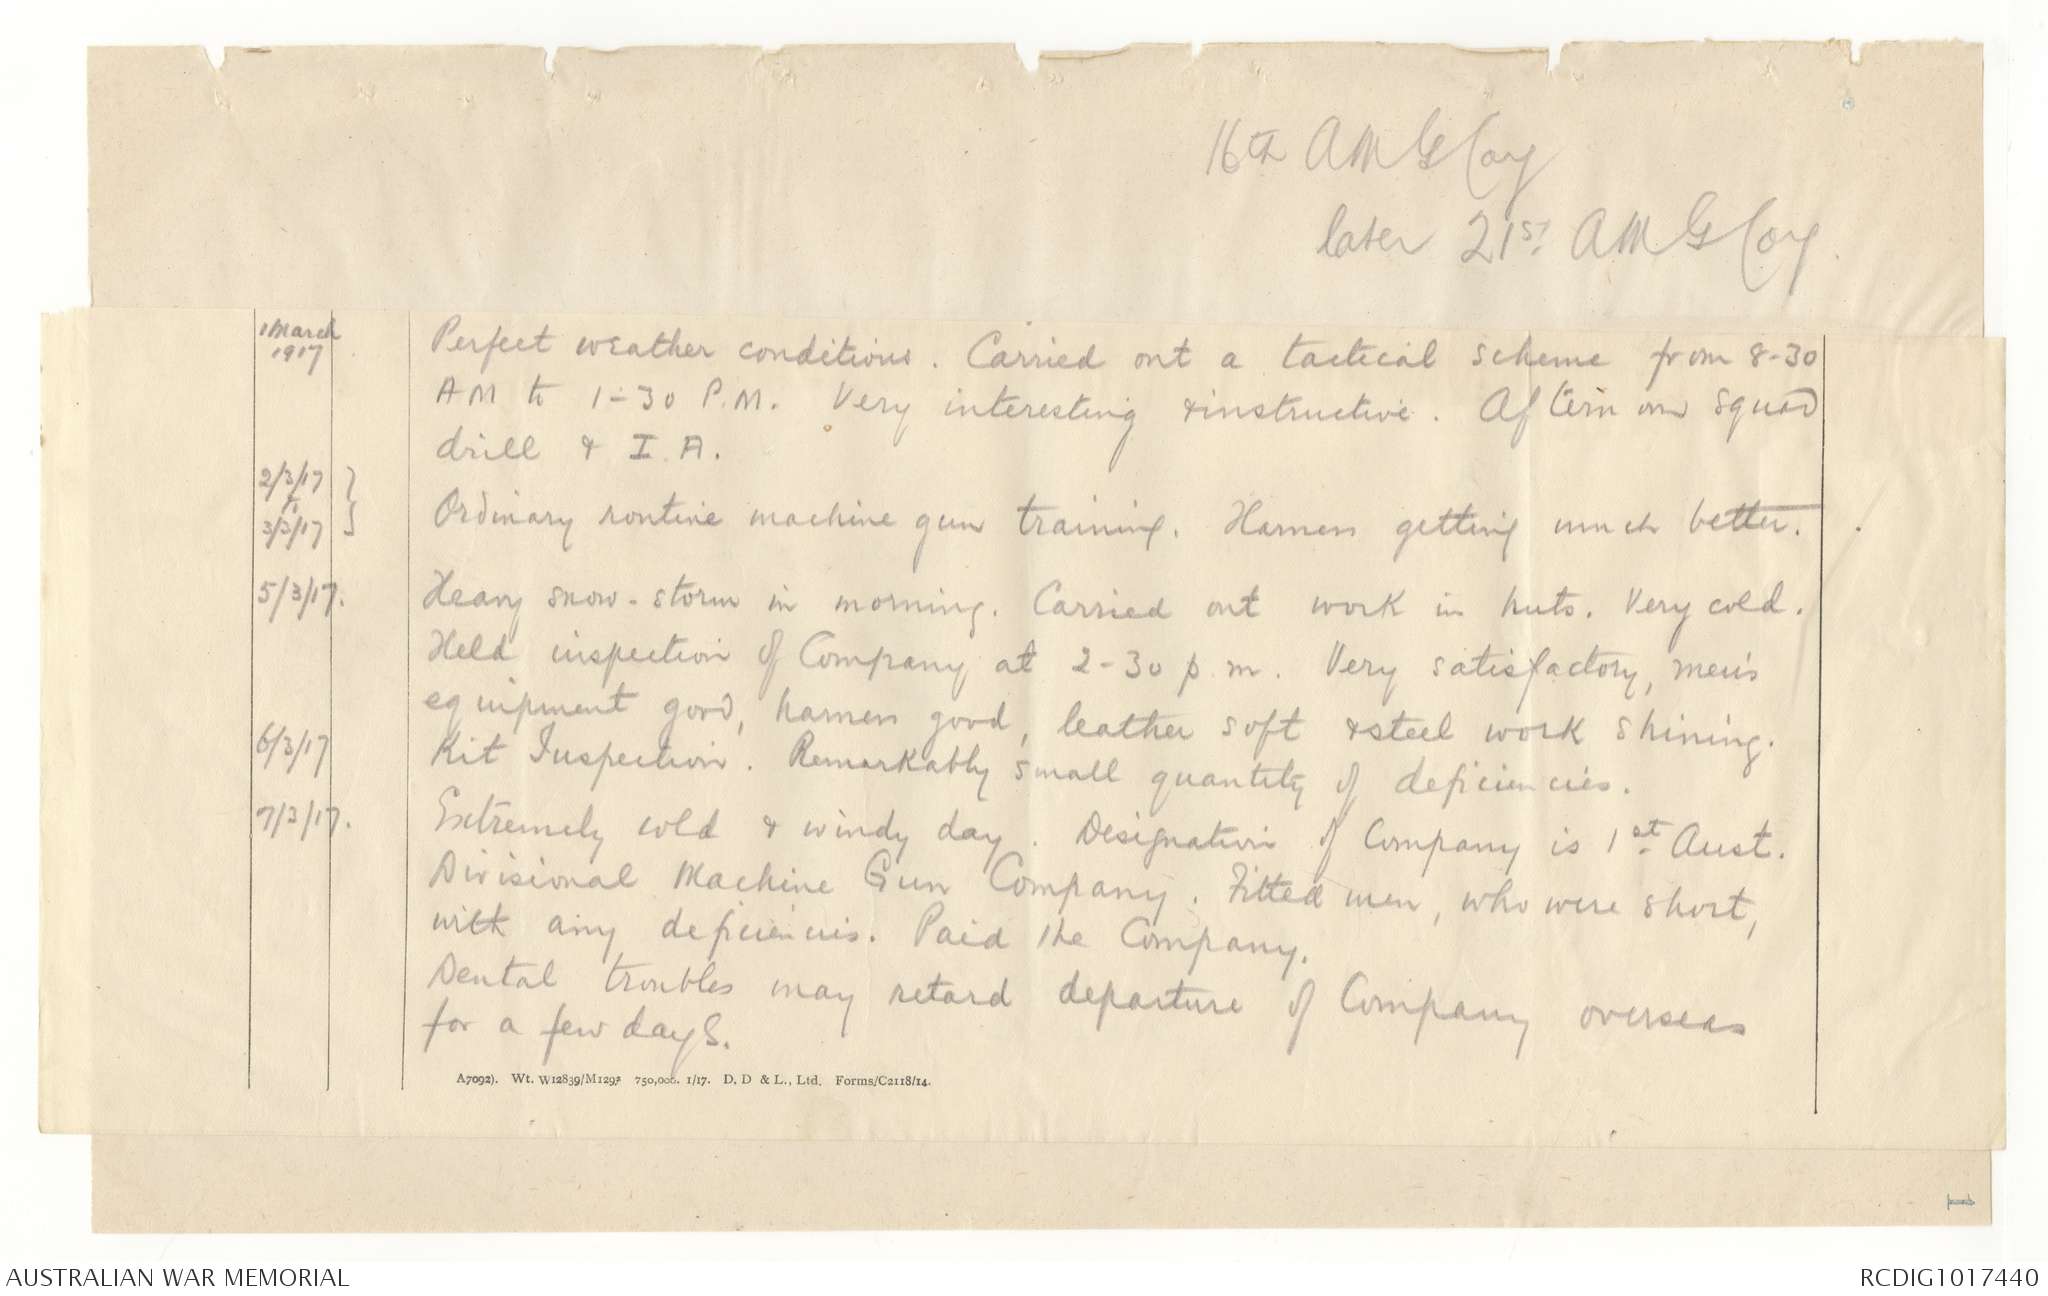 16th AMG Coy
later 21st AMG Coy.
1 March
1917
Perfect weather conditions. Carried out a tactical scheme from 8-30
AM to 1-30 P.M. Very interesting & instructive. Afternoon squad
drill & I.A.
2/3/17 }
to
3/3/17 }
Ordinary routine machine gun training. Harness getting much better.
5/3/17.
Heavy snow-storm in morning. Carried out work in huts. Very cold.
Held inspection of Company at 2-30 p.m. Very satisfactory, men's
equipment good, harness good, leather soft & steel work shining.
6/3/17
Kit Inspection. Remarkably small quantity of deficiencies.
7/3/17.
Extremely cold & windy day. Designation of Company is 1st Aust.
Divisional Machine Gun Company. Fitted men, who were short,
with any deficiencies. Paid the Company.
Dental troubles may retard departure of Company overseas
for a few days.
A7092). Wt. W12839/M1293 750,000. 1/17. D. D & L., Ltd. Forms/C2118/14.
1
AUSTRALIAN WAR MEMORIAL
RCDIG1017440